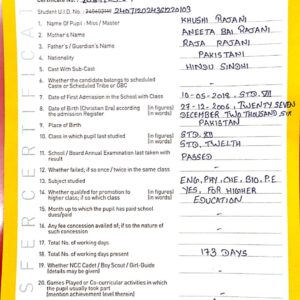 SFER CERTIFICAT
Student U.I.D. No. 2407202436220103
1 Name Of Pupil : Miss / Master KHUSHI RAJANI
2 Mother's Name ANEETA BAI RAJANI
3 Father's / Guardian's Name RAJA RAJANI
4 Nationality PAKISTANI
5 Cast With Sub-Cast HINDU SINDHI
6 Whether the candidate belongs to scheduled
Caste or Scheduled Tribe or OBC -
7 Date of First Admission in the School with Class 10-05-2018, STD. VII
8 Date of Birth (Christian Era) according (in figures) 27-12-2006, TWENTY SEVEN
the admission Register (in words) DECEMBER TWO THOUSAND SIX
9 Place of Birth PAKISTAN
10 Class in which pupil last studied (in figures) STD. XII
(in words) STD. TWELTH
11 School / Board Annual Examination last taken with
result PASSED
12 Whether failed, if so once / twice in the same class -
13 Subject studied ENG, PHY, CHE, BIO, P.E
14 Whether qualified for promotion to (in figures) YES, FOR HIGHER
higher class; if so to which class (in words) EDUCATION
15 Month up to which the pupil has paid school
dues/paid -
16 Any fee concession availed of; if so the nature of
such concession -
17 Total No. of working days
18 Total No. of working days present 173 DAYS
19 Whether NCC Cadet / Boy Scout / Girl-Guide
(details may be given) -
20 Games Played or Co-curricular activities in which
the pupil usually took part
(mention achievement level therein) -